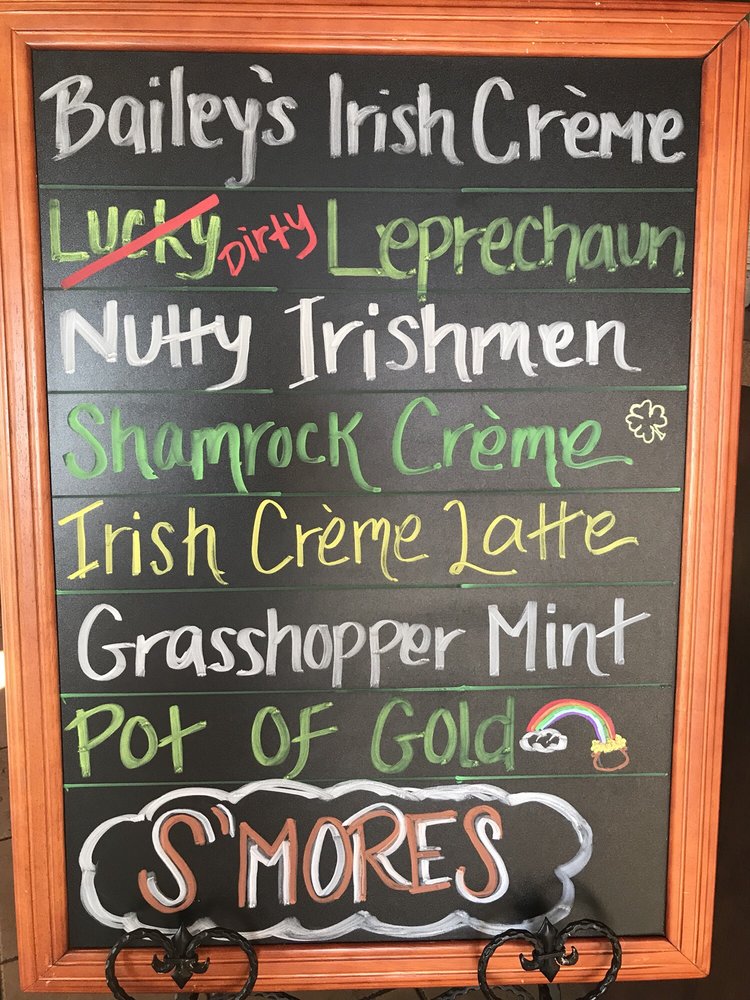 Bailey's Irish Crème
Lucky Dirty Leprechaun
Nutty Irishmen
Shamrock Crème
Irish Crème Latte
Grasshopper Mint
Pot Of Gold
S'MORES